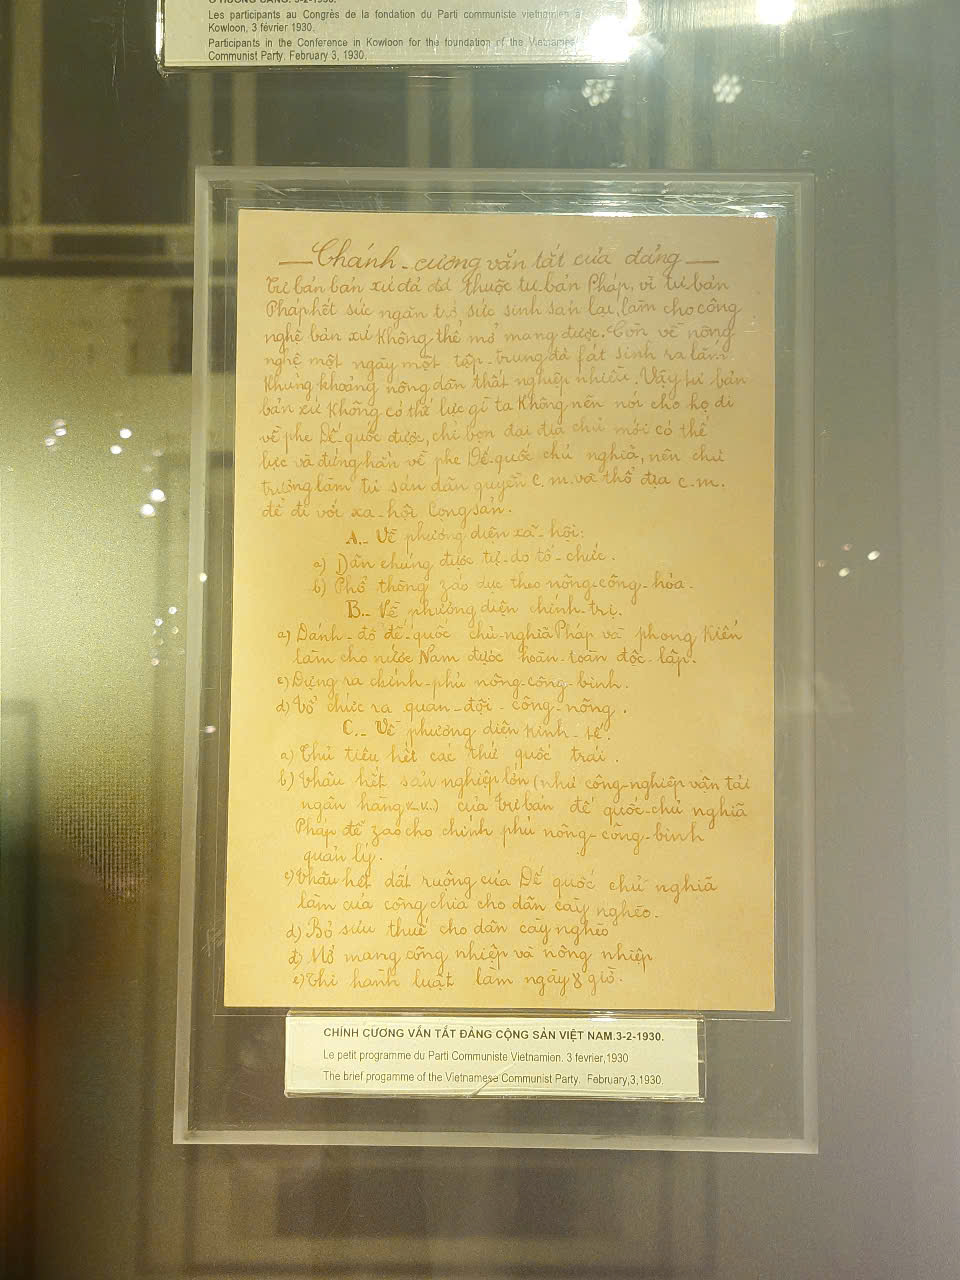 Les participants au Congrès de la fondation du Parti communiste vietnamien à
Kowloon, 3 février 1930.
Participants in the Conference in Kowloon for the foundation of the Vietnamese
Communist Party. February 3, 1930.
Chánh-cương vắn tắt của đảng
Tư bản bản xứ đã thuộc tư bản Pháp, vì tư bản
Pháp hết sức ngăn trở sức sinh sản lại, làm cho công
nghệ bản xứ không thể mở mang được. Còn về nông
nghệ một ngày một tập-trung đã fát sinh ra lắm
khủng khoảng nông dân thất nghiệp nhiều. Vậy tư bản
bản xứ không có thế lực gì ta không nên nói cho họ đi
về phe Đế-quốc được, chỉ bọn đại địa chủ mới có thế
lực và đứng hẳn về phe Đế-quốc chủ nghĩa, nên chủ
trương làm tư sản dân quyền c.m. và thổ địa c.m.
để đi với xa-hội Cọng sản.
A.- Về phương diện xã-hội:
a) Dân chúng được tự-do tổ-chức.
b) Phổ thông záo dục theo nông-công-hóa.
B.- Về phương diện chính-trị.
a) Đánh-đổ đế-quốc chủ-nghĩa Pháp và phong kiến
làm cho nước Nam được hoàn-toàn độc-lập.
c) Dựng ra chính-phủ nông-công-binh.
d) Tổ chức ra quan-đội-công-nông.
C.- Về phương diện kinh-tế.
a) Thủ tiêu hết các thứ quốc trái.
b) Thâu hết sản nghiệp lớn (như công-nghiệp vận tải
ngân hàng v.v..) của tư bản đế quốc-chủ nghĩa
Pháp để zao cho chính phủ nông-công-binh
quản lý.
c) Thâu hết đất ruộng của Đế quốc chủ nghĩa
làm của công chia cho dân cày nghèo.
d) Bỏ sưu thuế cho dân cày nghèo
đ) Mở mang công nghiệp và nông nghiệp
e) Thi hành luật làm ngày 8 giờ.
CHÍNH CƯƠNG VẮN TẮT ĐẢNG CỘNG SẢN VIỆT NAM.3-2-1930.
Le petit programme du Parti Communiste Vietnamion. 3 fevrier,1930
The brief progamme of the Vietnamese Communist Party. February,3,1930.